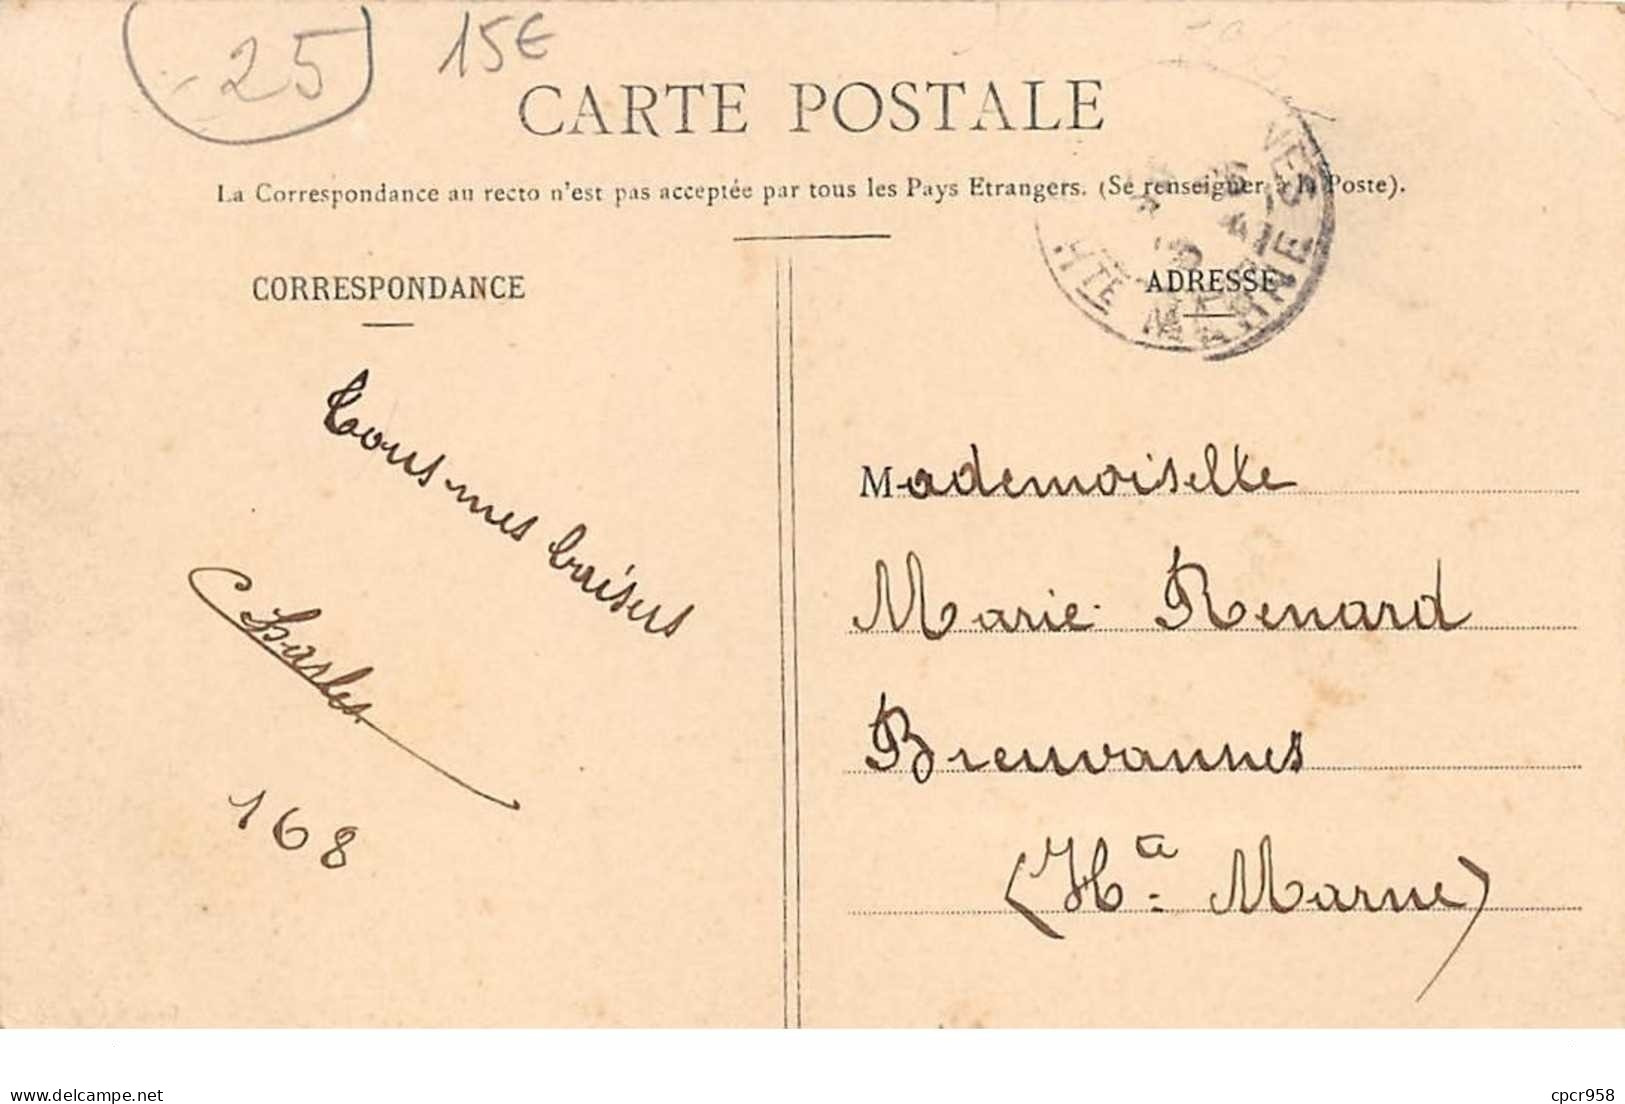 25
15€
CARTE POSTALE
La Correspondance au recto n'est pas acceptée par tous les Pays Etrangers. (Se renseigner à la Poste).
CORRESPONDANCE
Tous mes baisers
Charles
168
ADRESSE
HTE MARNE
Mademoiselle
Marie Renard
Breuvannes
(Hte Marne)
www.delcampe.net
cpcr958